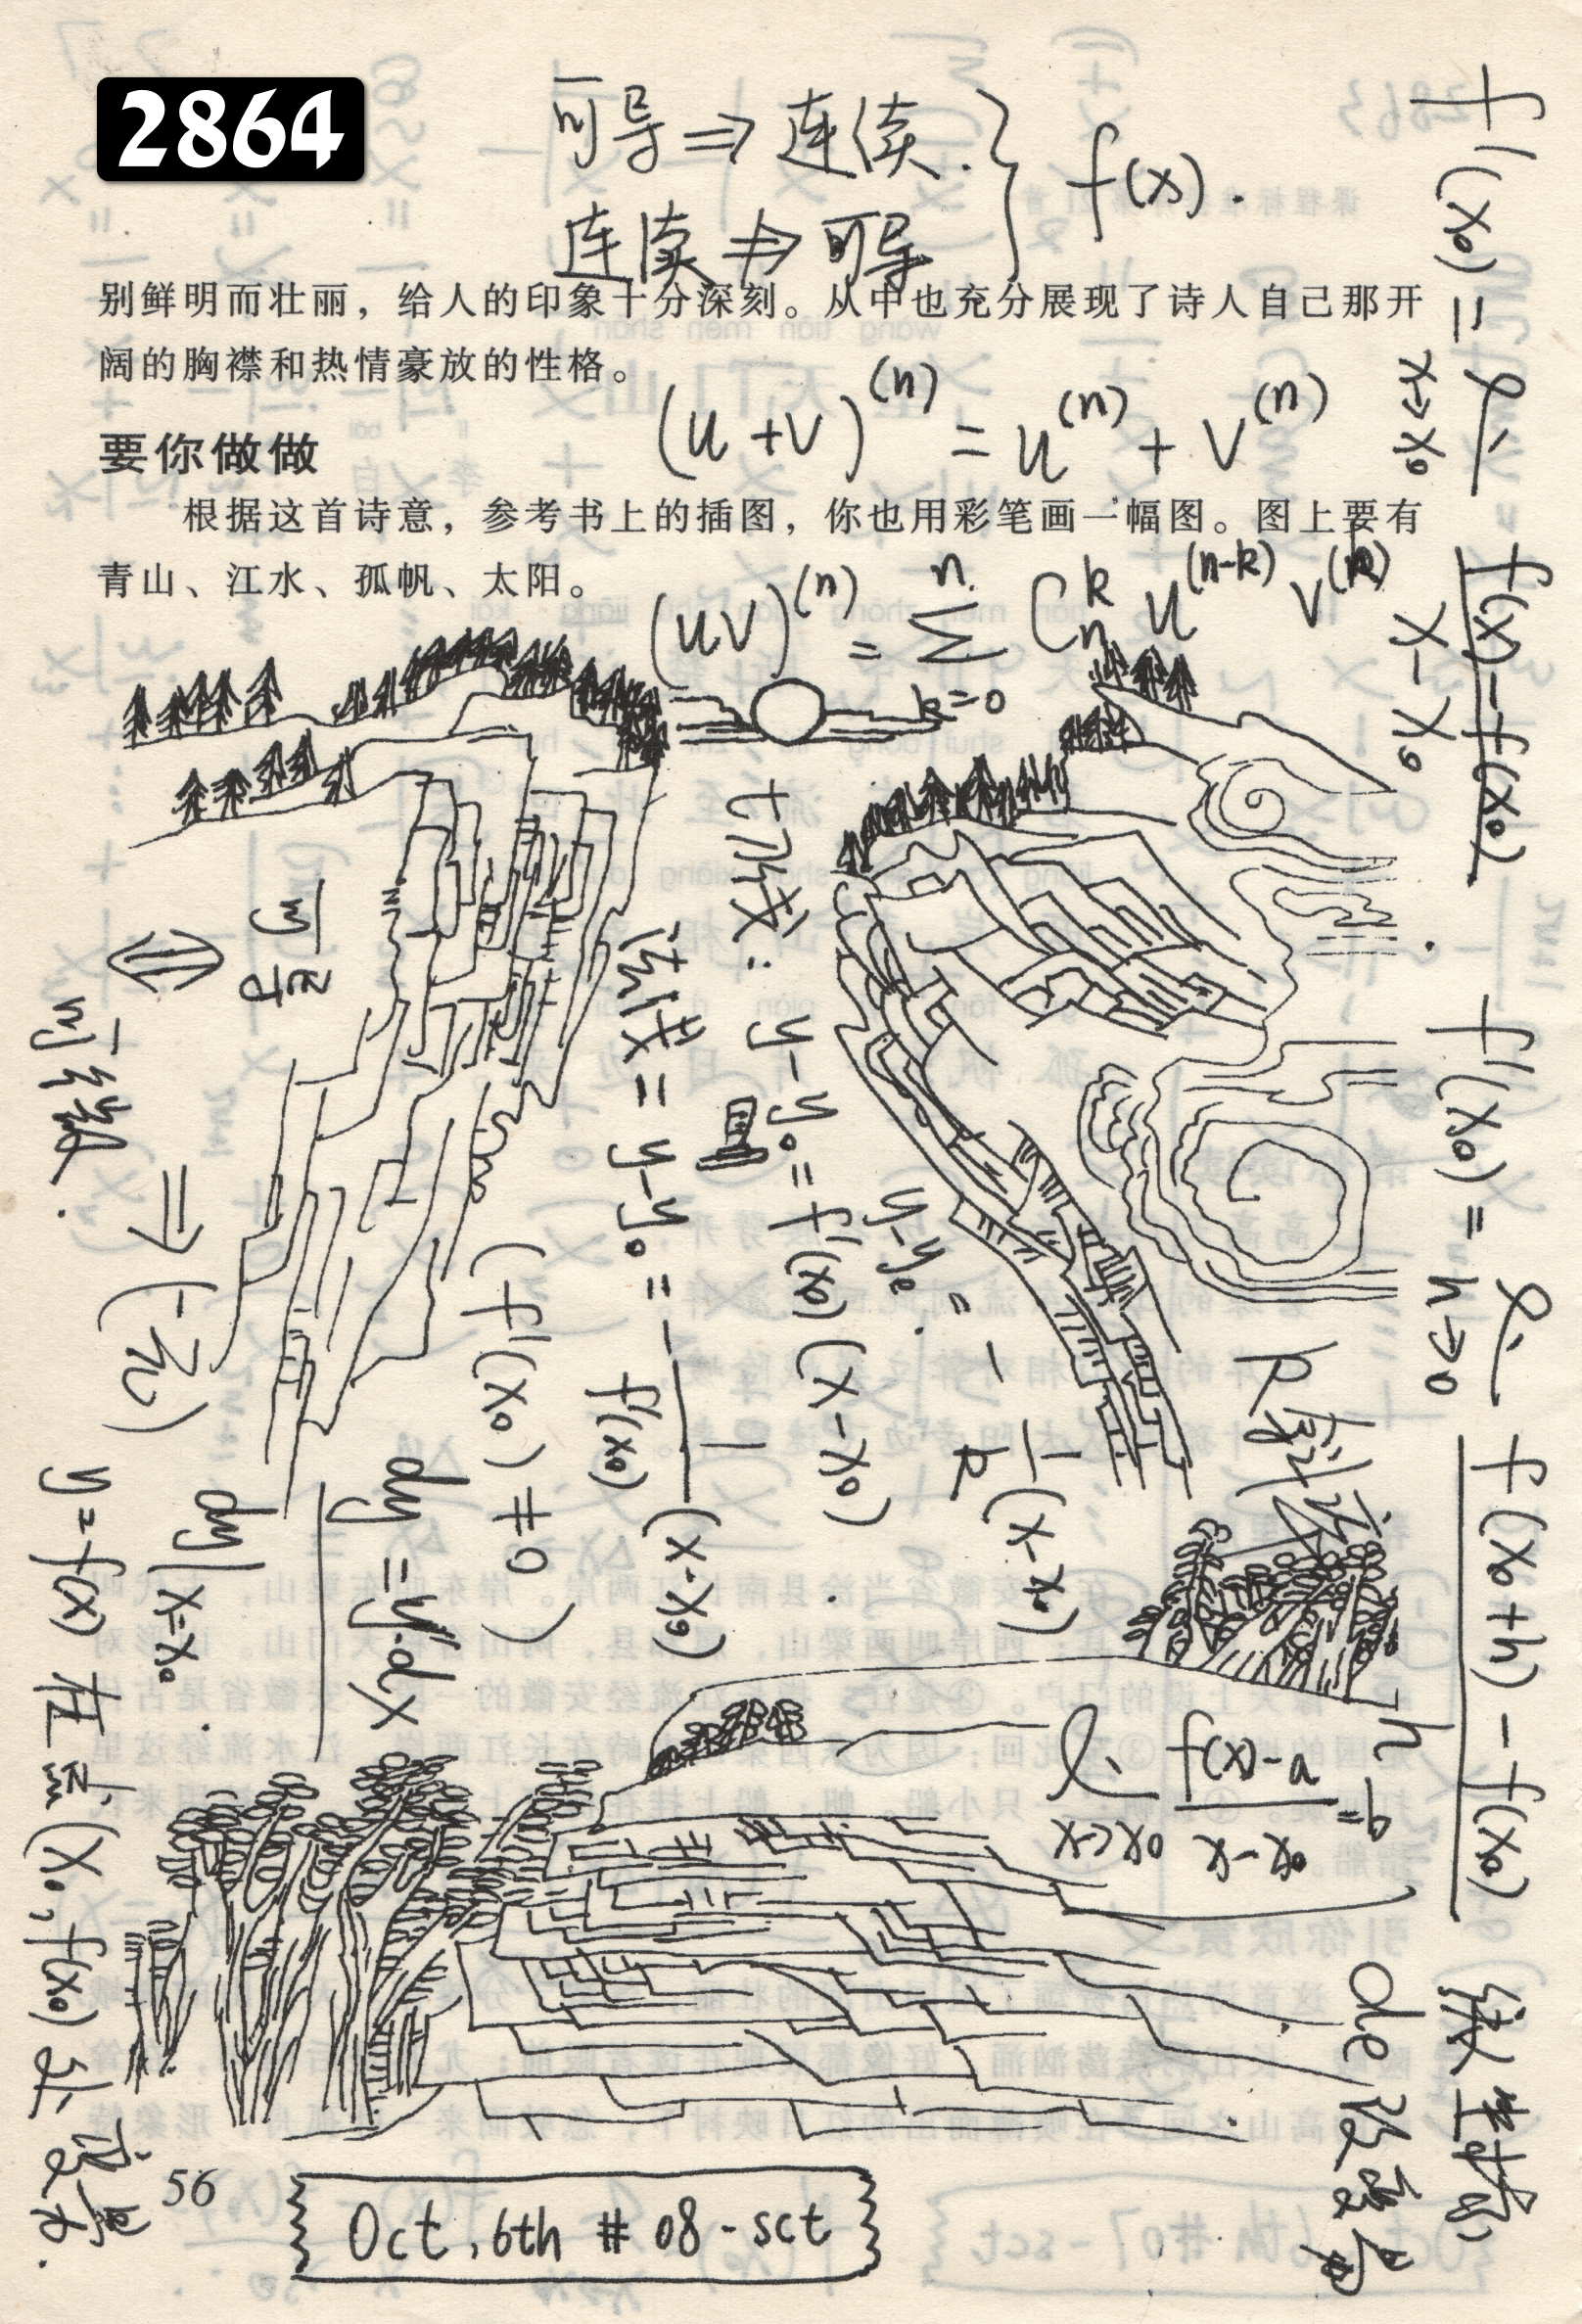 2864
可导 ⇒ 连续.
连续 ⇏ 可导
} f(x).
别鲜明而壮丽，给人的印象十分深刻。从中也充分展现了诗人自己那开
阔的胸襟和热情豪放的性格。
(u+v)^(n) = u^(n) + v^(n)
要你做做
根据这首诗意，参考书上的插图，你也用彩笔画一幅图。图上要有
青山、江水、孤帆、太阳。
(uv)^(n) = Σ_{k=0}^{n} C_n^k u^(n-k) v^(k)
f'(x₀) = lim_{x→x₀} (f(x)-f(x₀))/(x-x₀)
f'(x₀) = lim_{h→0} (f(x₀+h)-f(x₀))/h
de 改变量
k 斜率
y-y₀ = -1/k (x-x₀)
切线: y-y₀ = f'(x₀)(x-x₀)
法线 = y-y₀ = -1/f'(x₀) (x-x₀)
(f'(x₀) ≠ 0)
dy = y'·dx
可导
⇕
可微. ⇒ (一元)
dy|x=x₀
y=f(x) 在点 (x₀, f(x₀)) 处
lim_{x→x₀} (f(x)-a)/(x-x₀) = b
56
Oct, 6th # 08-sct